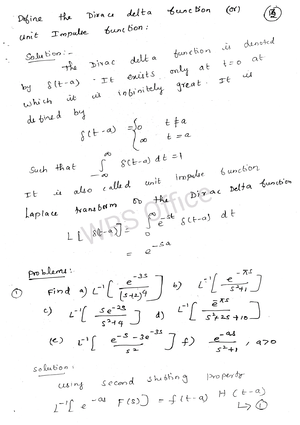 Define the Dirac delta function (or)
unit Impulse function:
Solution:-
The Dirac delta function is denoted
by δ(t-a). It exists only at t=0 at
which it is infinitely great. It is
defined by
δ(t-a) = { 0 t≠a
∞ t=a
Such that ∫_{-∞}^{∞} δ(t-a) dt = 1
It is also called unit impulse function
Laplace transform of the Dirac Delta function
L[δ(t-a)] = ∫_0^∞ e^{-st} δ(t-a) dt
= e^{-sa}
WPS Office
Problems:-
① Find a) L^{-1}[e^{-3s}/(s+2)^4] b) L^{-1}[e^{-πs}/s²+1]
c) L^{-1}[se^{-2s}/s²+9] d) L^{-1}[e^{-πs}/s²+2s+10]
(e) L^{-1}[e^{-s}-3e^{-3s}/s²] f) e^{-as}/s²+1, a>0
solution:
using second shifting property
L^{-1}[e^{-as} F(s)] = f(t-a) H(t-a)
↳ ①